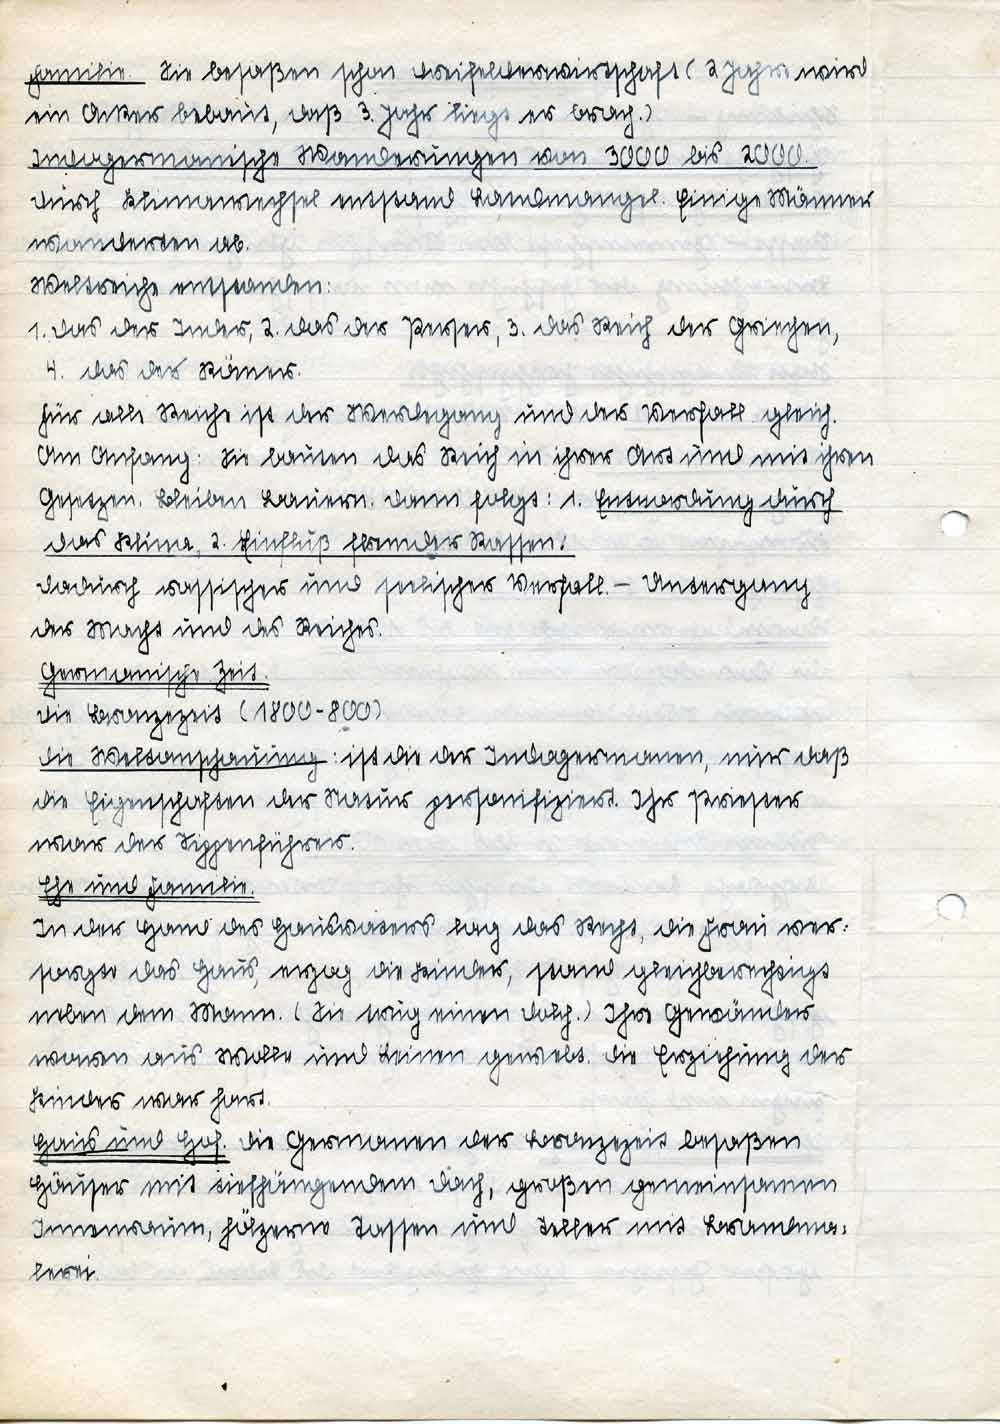 Familie. Sie besaßen schon Dreifelderwirtschaft (2 Jahre wird
ein Acker bebaut, daß 3. Jahr liegt er brach.)
Indogermanische Wanderungen von 3000 bis 2000.
Durch Klimawechsel entstand Landmangel. Einige Männer
wanderten ab.
Weltreiche entstanden:
1. das der Inder, 2. das der Perser, 3. das Reich der Griechen,
4. das der Römer.
Für alle Reiche ist der Werdegang und der Verfall gleich.
Am Anfang: Sie bauten das Reich in ihrer Art und mit ihren
Gesetzen. Bleiben Bauern. Dann folgt: 1. Entnordung durch
das Klima, 2. Einfluß fremder Rassen.
Dadurch rassischer und seelischer Verfall. – Untergang
der Macht und des Reiches.
Germanische Zeit.
Die Bronzezeit (1800-800)
Die Weltanschauung: ist die der Indogermanen, nur daß
die Eigenschaften der Natur personifiziert. Ihr Priester
war der Sippenführer.
Ehe und Familie.
In der Hand des Hausvaters lag das Recht, die Frau ver:
sorgte das Haus, erzog die Kinder, stand gleichberechtigt
neben dem Mann. (Sie trug einen Dolch.) Ihre Gewänder
waren aus Wolle und Leinen gewebt. Die Erziehung der
Kinder war hart.
Haus und Hof. Die Germanen der Bronzezeit besaßen
Häuser mit tiefhängendem Dach, großen gemeinsamen
Innenraum, hölzerne Tassen und Teller mit Brandma:
lerei.